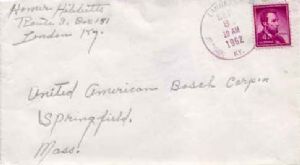 Homer Hibbitts
Route 3. Box 151
London Ky.
8
10 AM
1962
KY.
United American Bosch Corpn
Springfield.
Mass.